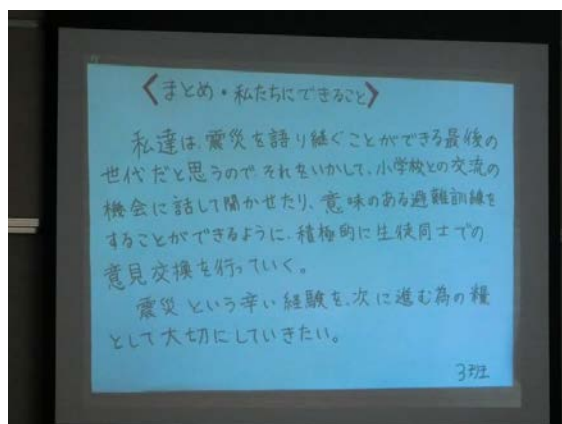 <まとめ・私たちにできること>
私達は、震災を語り継ぐことができる最後の
世代だと思うので、それをいかして、小学校との交流の
機会に話して聞かせたり、意味のある避難訓練を
することができるように、積極的に生徒同士での
意見交換を行っていく。
震災という辛い経験を、次に進む為の糧
として大切にしていきたい。
3班